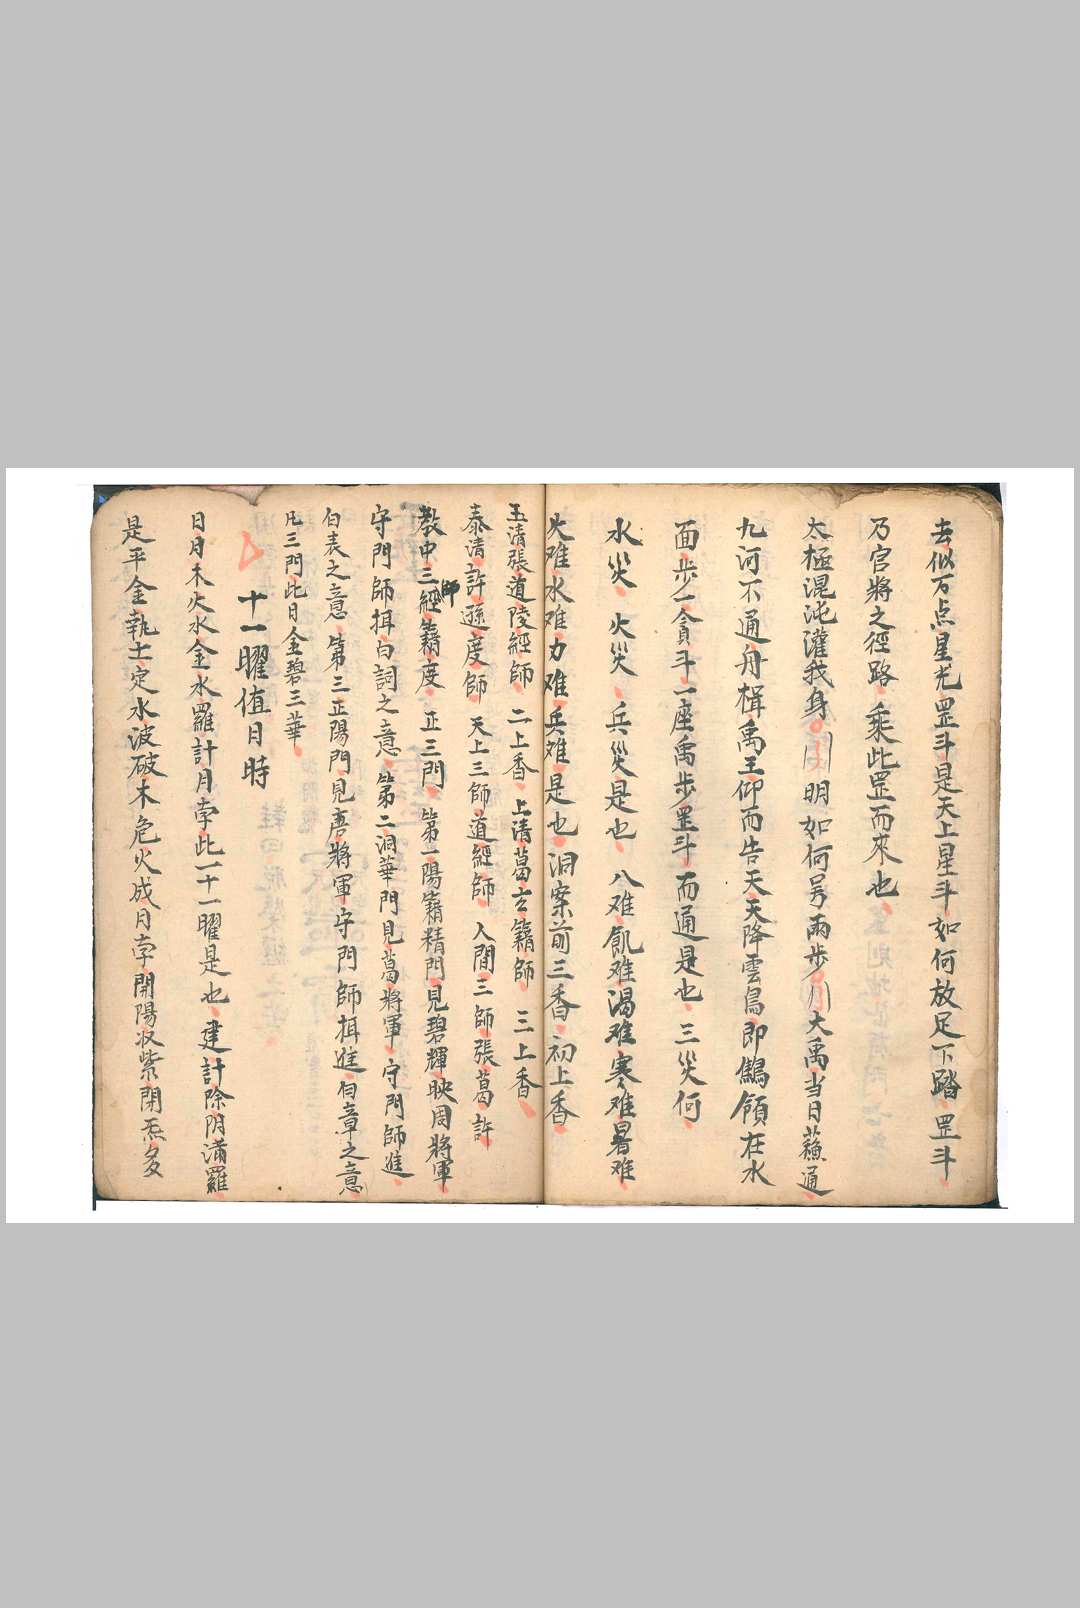 去似万点星光罡斗是天上星斗如何放足下踏罡斗
乃官將之徑路乘此罡而來也
太極混沌灌我身 明如何另雨步 大禹当日蘓通
九河不通舟楫禹王仰而告天天降雲鳥即鷯領在水
面步一貪斗一座禹步罡斗而通是也 三災何
水災 火災 兵災是也 八难飢难渴难寒难暑难
火难水难力难兵难是也 洞案前三香初上香
玉清張道陵經師 二上香 上清葛玄籍師 三上香
泰清許遜度師 天上三師道經師 人間三師張葛許
教中三師經籍度 正三門 第一陽籍精門見碧輝映周將軍
守門師揖白詞之意 第二洞華門見葛將軍守門師進
白表之意 第三正陽門見唐將軍守門師揖進白章之意
凡三門此日金碧三華
十一曜值月時
日月木火水金水羅計月孛此一十一曜是也 建計除阴滿羅
是平金執土定水波破木危火成月孛開陽收紫閉炁多